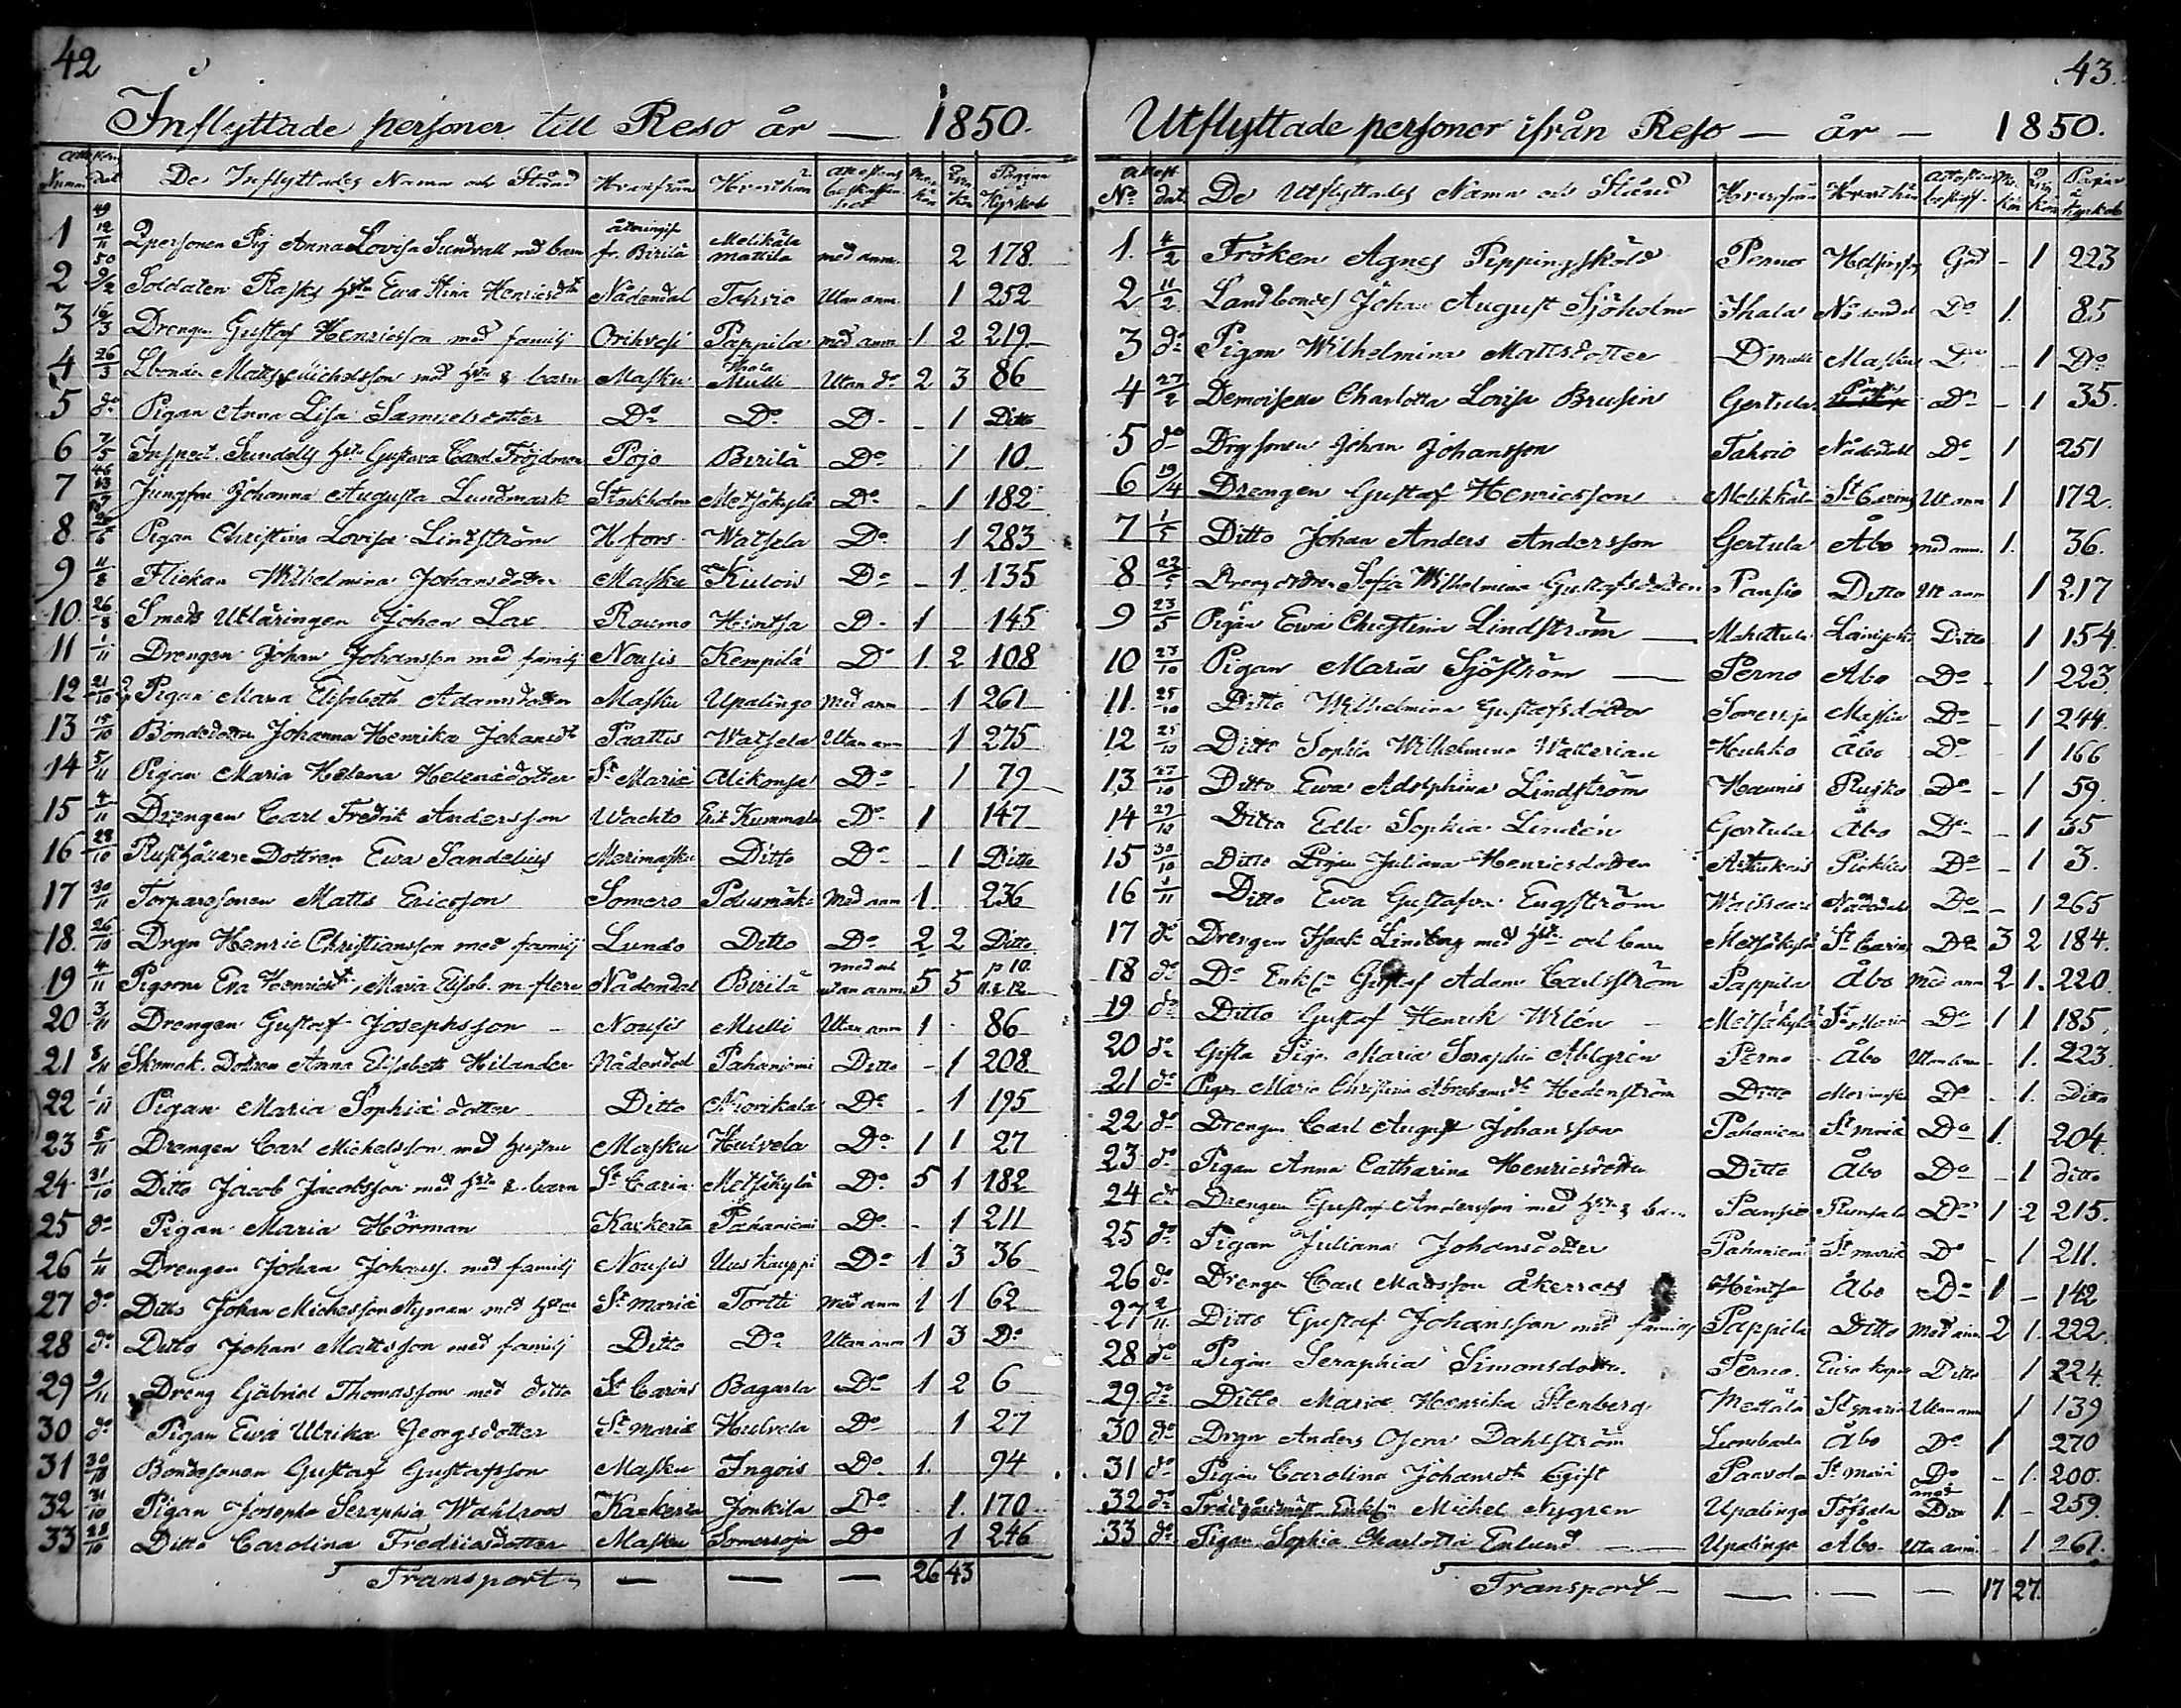 42
Inflyttade personer till Reso år — 1850.
De Inflyttades Namn och Stånd Hvarifrån Hvarthän
1 Anna Lovisa Sundvall med barn fr. Birilä Melikäla Mattila med anm. 2 178
2 2/2 Soldaten Rasks Ewa Stina Nådendal Tahvio Utan anm. 1 252
3 Drengen Gustaf Henricsson med familj Orihvesi Pappila med anm 1 2 219
4 26/3 Matts Michelsson med & barn Masku Ihala Mulli Utan do 2 3 86
5 do Pigan Anna Lisa Samuelsdotter Do Do D - 1 Ditto
6 7/5 Inspect. Sundells Gustava Carol. Fröjdman Pojo Birilä Do 1 10
7 Jungfru Johanna Augusta Lundmark Stockholm Metsäkylä Do - 1 182
8 Pigan Christina Lovisa Lindström Hfors Watsela Do 1 283
9 11/8 Flickan Wilhelmina Johansdotter Masku Kulois Do - 1 135
10 26/8 Smeds Utläringen Johan Lax Raumo Heintsa D- 1 145
11 1/11 Drengen Johan Johansson med familj Nousis Kempilä Do 1 2 108
12 21/10 Pigan Maria Elisabeth Adamsdotter Masku Upalingo Med anm - 1 261
13 15/10 Bondedottren Johanna Henrika Johansdr Paattis Watsela Utan anm 1 275
14 5/11 Pigan Maria Helena Henricsdotter St Marie Alikompa Do - 1 79
15 4/11 Drengen Carl Fredrik Andersson Wachto Erik Kummala Do 1 147
16 28/10 Rusthållare Dottren Ewa Sandelius Merimasku Ditto Do - 1 Ditto
17 30/11 Torparesonen Matts Ericsson Somero Polusmäki Med anm 1 236
18 26/10 Drgn Henric Christiansson med familj Lundo Ditto Do 2 2 Ditto
19 4/11 Pigorne Eva Henricsdr, Maria Elisab. m. flere Nådendal Birilä med och utan anm. 5 5 p 10. 11. & 12
20 3/11 Drengen Gustaf Josephsson - Nousis Mulli Utan anm 1 - 86
21 8/11 Skomak. Dottren Anna Elisabeth Hilander Nådendal Pahaniemi Ditto - 1 208
22 1/11 Pigan Maria Sophia dotter Ditto Nuorikala Do - 1 195
23 5/11 Drengen Carl Michelsson med hustru Masku Huivela Do 1 1 27
24 31/10 Ditto Jacob Jacobsson med & barn St Carin Metsäkylä Do 5 1 182
25 do Pigan Maria Hörman Kackerta Pahaniemi Do - 1 211
26 1/11 Drengen Johan Johanss. med familj Nousis Uuskauppi Do 1 3 36
27 do Ditto Johan Michelsson Nyman med St Marie Tortti Med anm 1 1 62
28 do Ditto Johan Mattsson med familj Ditto Do Utan anm 1 3 Do
29 9/11 Dreng Gabriel Thomasson med ditto St Carins Bagarla Do 1 2 6
30 do Pigan Ewa Ulrika Georgsdotter St Marie Huivela Do 1 27
31 30/10 Bondesonen Gustaf Gustafsson Masku Ingois Do 1. 94
32 31/10 Pigan Josepha Seraphia Wahlroos Kackerta Jonkila Do 1. 170
33 28/10 Ditto Carolina Fredricsdotter Masku Somersoja Do 1 246
Transport — — — 26 43
43.
Utflyttade personer ifrån Reso — år — 1850.
No dat. De Utflyttades Namn och Stånd Hvarifrån Hvarthän
1. 4/2 Fröken Agnes Pippingsköld Perno Helsingfors God - 1 223
2 11/2 Landbondes Johan August Sjöholm Ihala Nådendal Do 1. 85
3 do Pigan Wilhelmina Mattsdotter D Mulli Masku - 1 Do
4 27/2 Demoisele Charlotta Lovisa Brusin Gertula Do - 1 35.
5 do Drgsonen Johan Johansson Tahvio Nådendal Do 1 251
6 19/4 Drengen Gustaf Henricsson Melikkälä St Carins Ut anm 1 172.
7 1/5 Ditto Johan Anders Andersson Gertula Åbo med anm. 1. 36.
8 22/5 Sofia Wilhelmina Gustafsdotter Pansio Ditto Ut anm 1 217
9 23/5 Pigan Ewa Christina Lindström — Mahittula Ditto 1 154.
10 23/10 Pigan Maria Sjöström — Perno Åbo Do - 1 223.
11. 25/10 Ditto Wilhelmina Gustafsdotter Somersoja Masku Do - 1 244.
12 25/10 Ditto Sophia Wilhelmina Wallerian Huhko Åbo Do - 1 166
13 27/10 Ditto Ewa Adolphina Lindström Haunis Rusko Do - 1 59.
14 29/10 Ditto Edla Sophia Lindén Gertula Åbo Do - 1 35
15 30/10 Ditto Pigan Juliana Henricsdotter Artukais Pikkis Do - 1 3.
16 1/11 Ditto Ewa Gustafva Engström Nådendal Do - 1 265
17 do Drengen Isack Lindberg med och barn Metsäkylä St Carins Do 3 2 184.
18 do Do Gustaf Adam Carlström Pappila Åbo Med anm 2 1. 220
19 do Ditto Gustaf Henrik Wilén - Metsäkylä St Marie Do 1 1 185.
20 do Gifta Pigan Maria Seraphia Ahlgren Perno Åbo Utan anm - 1. 223.
21 do Pigan Maria Christina Abrahamsdr Hedenström Ditto Merimasku Do - 1. Ditto
22 do Drengen Carl August Johansson Pahaniemi St Marie Do 1. 204.
23 do Pigan Anna Catharina Henricsdotter Ditto Åbo Do - 1 ditto
24 do Drengen Gustaf Andersson med & barn Pansio Runsala Do 1 2 215.
25 do Pigan Juliana Johansdotter Pahaniemi St Marie Do - 1 211.
26 do Drengen Carl Mattsson Åkerroos Hintsa Åbo Do 1 - 142
27 2/11 Ditto Gustaf Johansson med familj Pappila Ditto Med anm. 2 1. 222.
28 do Pigan Seraphia Simonsdotter. Perno. Ditto 1 224.
29. do Ditto Maria Henrika Stenberg Mattala St Marie Utan anm 1 139
30 do Drgn Anders Dahlström Åbo Do 1 270
31 do Pigan Carolina Johansdr Ogift Paavola St Marie Do - 1. 200.
32 do Michel Nygren Upalingo Töfsala 1 - 259.
33 do Pigan Sophia Charlotta Enlund — Upalingo Åbo Utan anm. 1 261.
Transport — — — — 17 27.